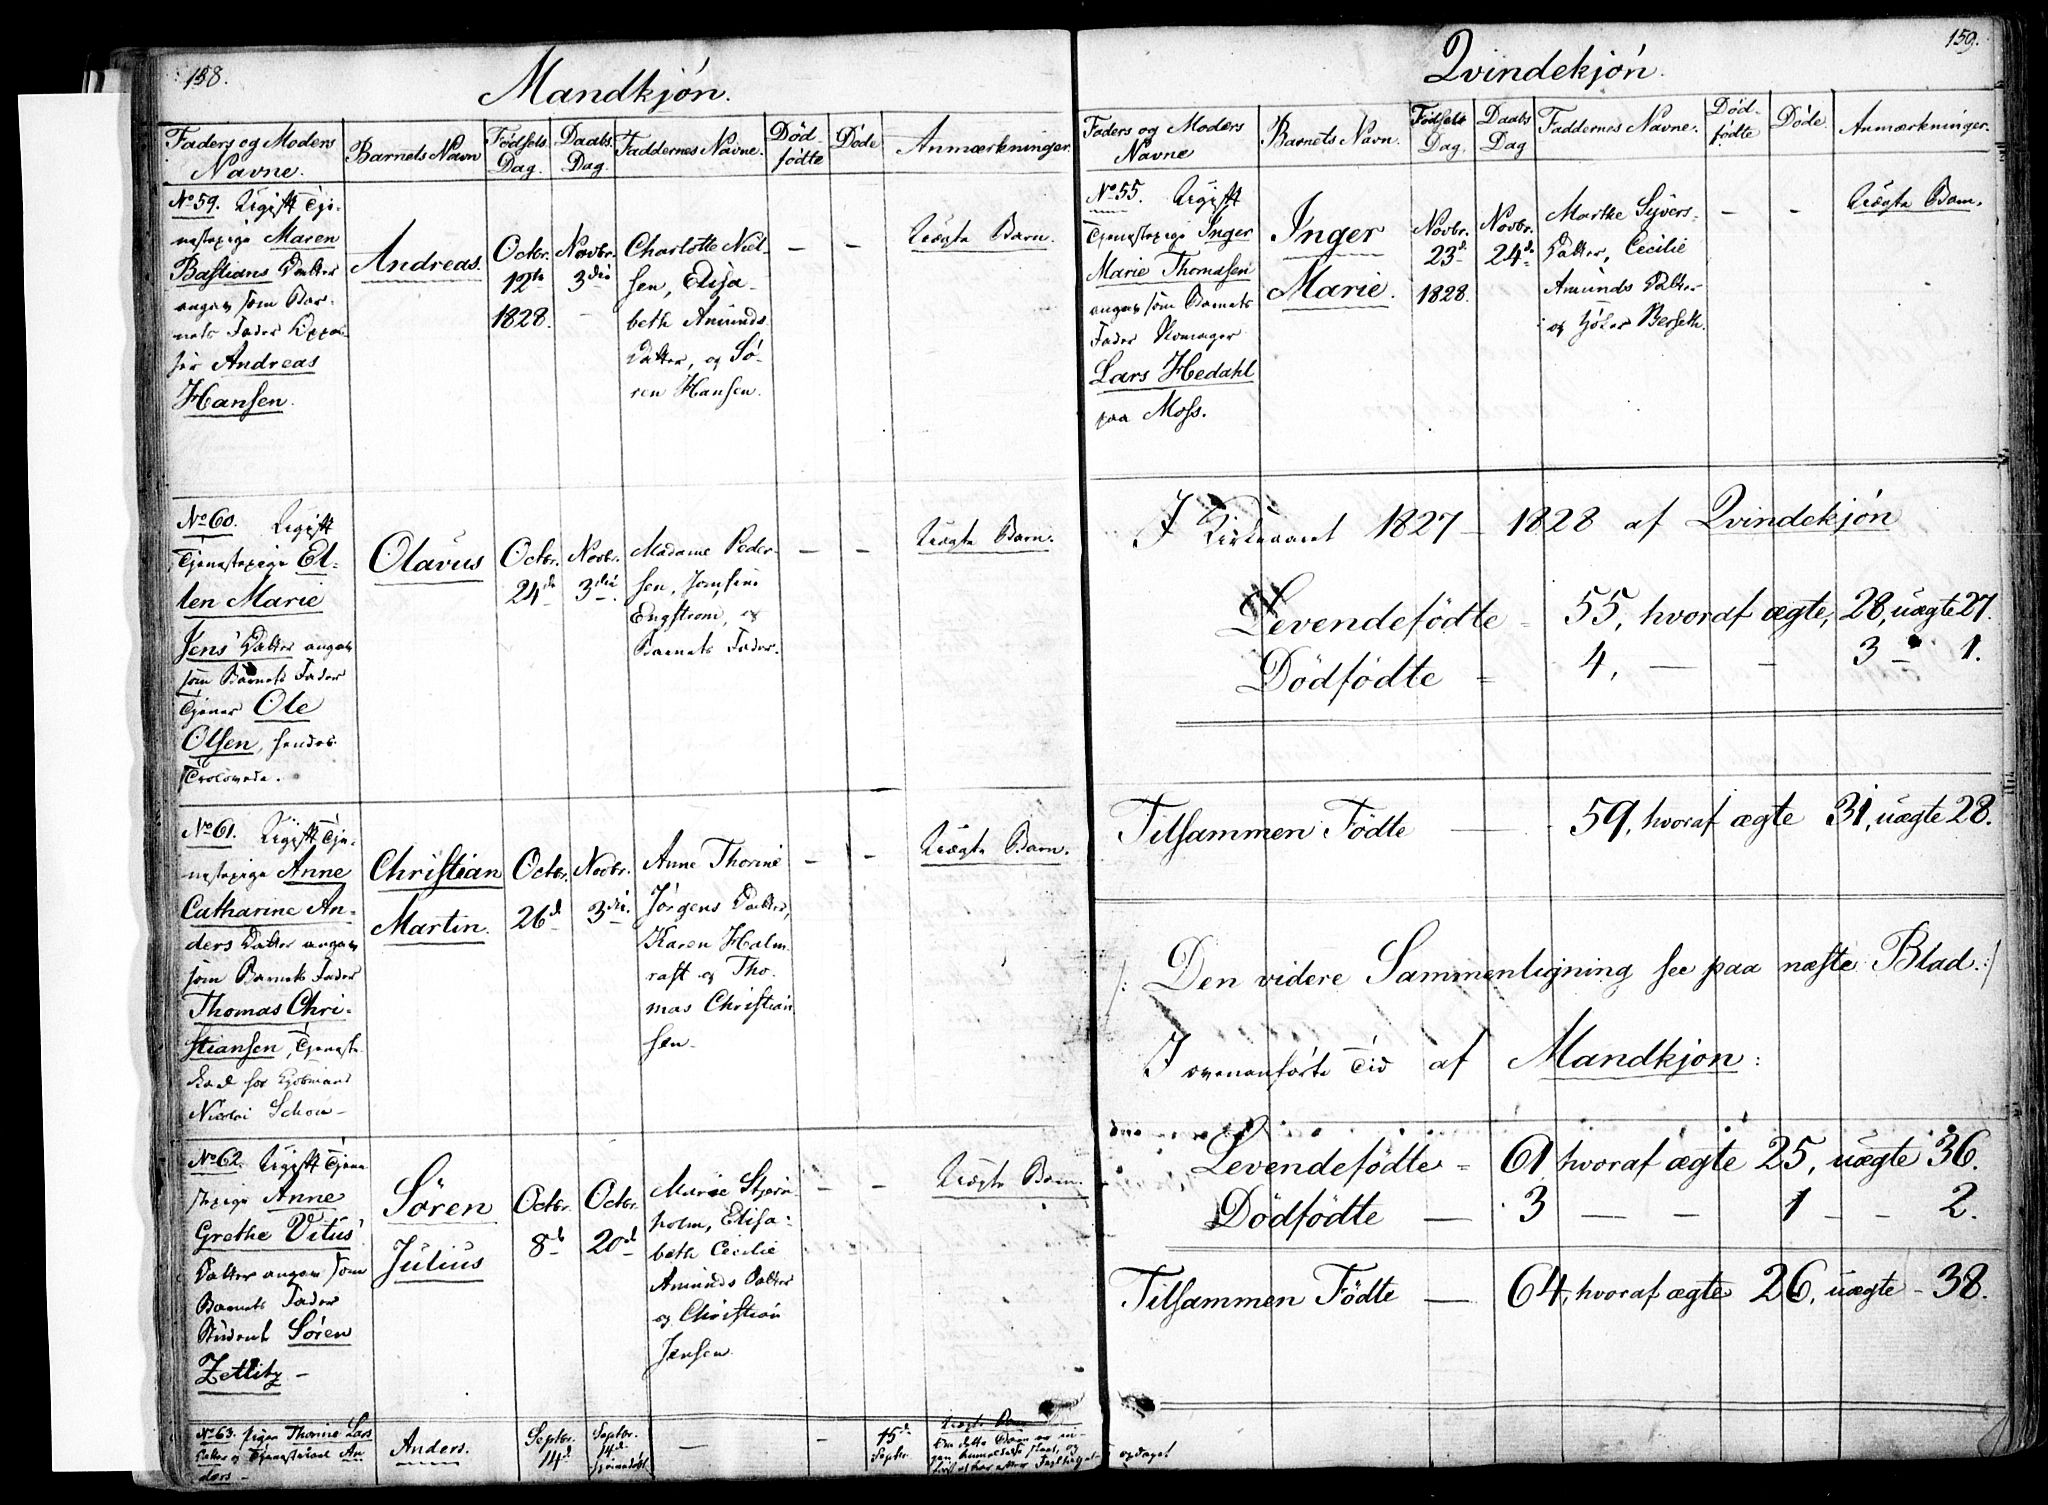 158.
Mandkjön.
Faders og Moders
Navne.
Barnets Navn
Födsels
Dag.
Daabs
Dag.
Faddernes Navne.
Död-
födte
Döde
Anmærkninger.
No 59. Ugift Tje-
nestepige Maren
Bastians Datter
angav som Bar-
nets Fader
Andreas
Hansen.
Andreas.
Octbr.
12te
1828.
Novbr.
3die
Charlotte Niel-
sen, Elisa-
beth Amunds
Datter, og Sö-
ren Hansen.
— —
Uægte Barn.
No 60. Ugift
Tjenestepige El-
len Marie
Jens' Datter angav
som Barnets Fader
Tjener Ole
Olsen, hendes
Trolovede.
Olavus
Octbr.
24de
Novbr.
3die
Madame Peder-
sen, Jomfrue
Engstrom, og
Barnets Fader.
— —
Uægte Barn.
No 61. Ugift Tje-
nestepige Anne
Catharine An-
ders Datter angav
som Barnets Fader
Thomas Chri-
stiansen, Tjeneste
Karl hos Kjöbmand
Nicolai Schou —
Christian
Martin.
Octbr.
26de
Novbr.
3die.
Anne Thorine
Jörgens Datter,
Karen Halm
rast og Tho-
mas Christian
sen —
— —
Uægte Barn.
No 62. Ugift Tjene
stepige Anne
Grethe Vitus'
Datter angav som
Barnets Fader
Student Sören
Zetlitz —
Sören
Julius
Octbr.
8de
Octbr.
20de
Marie Stjern
holm, Elisa-
beth Cecilie
Amunds Datter
og Christian
Jensen.
— —
Uægte Barn.
No 63. Pigen Thorine Lars
Datter og Tjenestekarl An
ders —
Anders.
Septbr.
14de
Septbr.
14de
hjemmedöbt
—
—
15de
Septbr.
Uægte Barn
Om dette Barn er in-
gen
opdaget
159.
Qvindekjön.
Faders og Moders
Navne
Barnets Navn.
Födsels
Dag.
Daabs
Dag
Faddernes Navne.
Död-
födte
Döde.
Anmærkninger.
No 55. Ugift
Tjenestepige Inger
Marie Thomasen
angav som Barnets
Fader
Lars Hedahl
paa Moss.
Inger
Marie.
Novbr.
23de
1828.
Novbr.
24de
Marthe Syvers-
Datter, Cecilie
Amunds Datter
og Berseth.
— —
Uægte Barn.
I Kirkeaaret 1827 — 1828 af Qvindekjön
Levendefödte = 55, hvoraf ægte, 28, uægte 27.
Dödfödte = 4, — — 3 — 1.
Tilsammen Födte — 59, hvoraf ægte 31, uægte 28.
/: Den videre Sammenligning see paa næste Blad :/
I ovenanförte Tid af Mandkjön:
Levendefödte = 61 hvoraf ægte 25, uægte 36.
Dödfödte — 3 — — 1 — — 2.
Tilsammen Födte — 64, hvoraf ægte 26, uægte — 38.